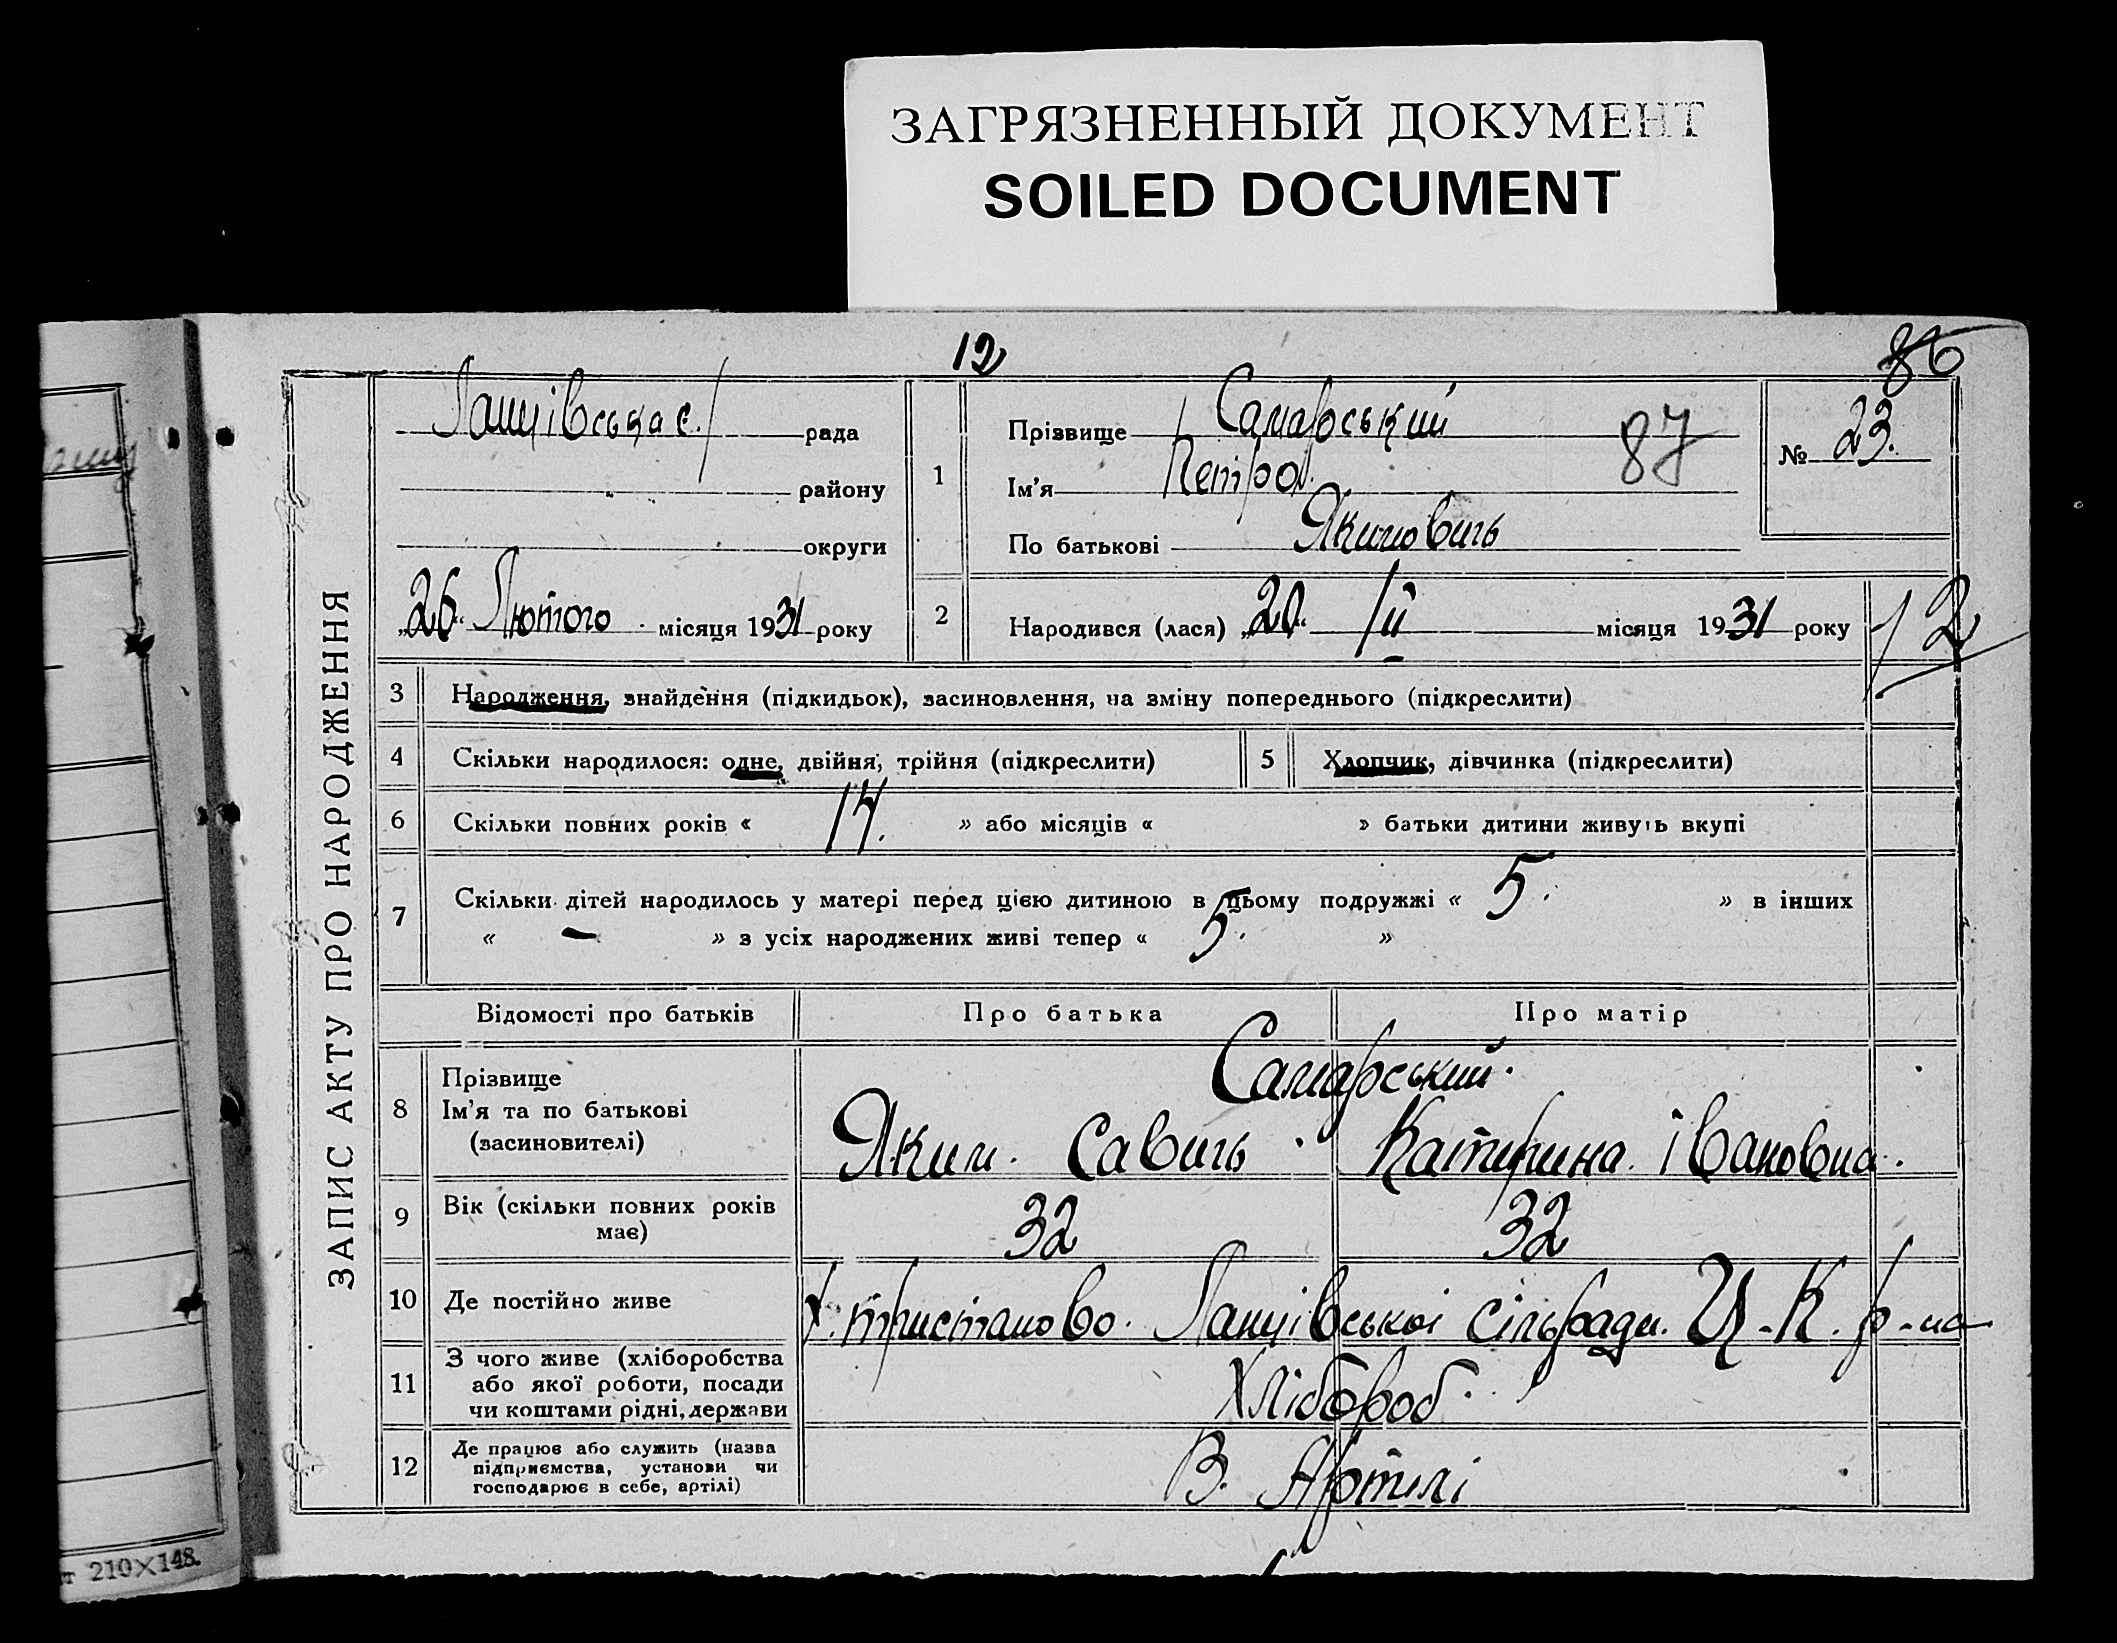 ЗАГРЯЗНЕННЫЙ ДОКУМЕНТ
SOILED DOCUMENT
12
86
ЗАПИС АКТУ ПРО НАРОДЖЕННЯ
рада
району
округи
„26“ Лютого місяця 1931 року
1
Прізвище Самарський
87
Ім'я Петро
По батькові Якимовичь
№ 23.
2
Народився (лася) „20“ II місяця 1931 року
12
3 Народження, знайдення (підкидьок), засиновлення, на зміну попереднього (підкреслити)
4 Скільки народилося: одне, двійня, трійня (підкреслити)
5 Хлопчик, дівчинка (підкреслити)
6 Скільки повних років « 14. » або місяців « » батьки дитини живуть вкупі
7 Скільки дітей народилось у матері перед цією дитиною в цьому подружжі « 5. » в інших
« – » з усіх народжених живі тепер « 5. »
Відомості про батьків Про батька Про матір
8 Прізвище
Ім'я та по батькові
(засиновителі)
Самарський.
Яким. Савичь. Катерина Івановна.
9 Вік (скільки повних років
має)
32 32
10 Де постійно живе
сільради. Ц-К. р-на
11 З чого живе (хліборобства
або якої роботи, посади
чи коштами рідні, держави
Хлібороб.
12 Де працює або служить (назва
підприємства, установи чи
господарює в себе, артілі)
В. Артілі
210×148.